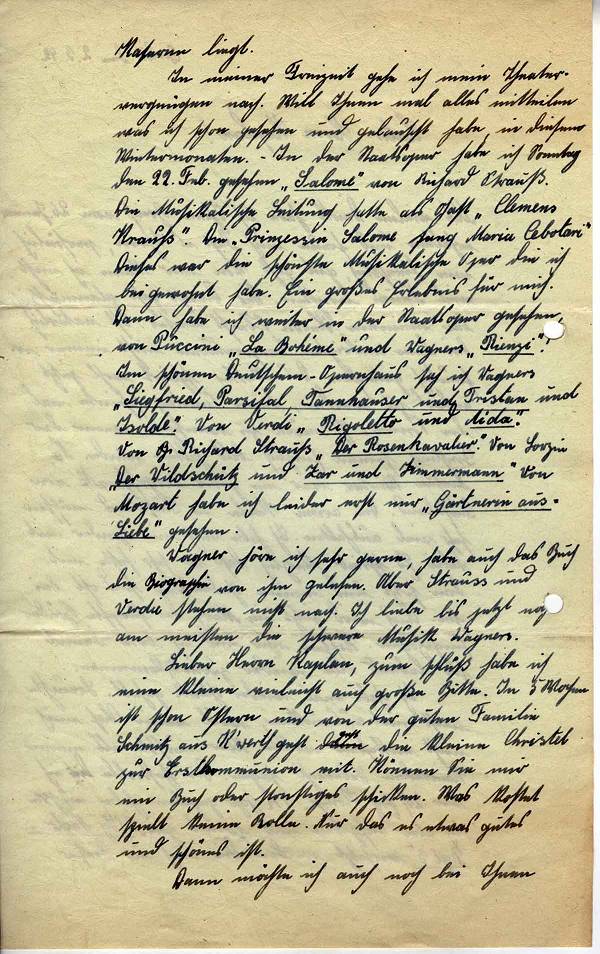 Kaserne liegt.
In meiner Freizeit gehe ich mein Theater-
vergnügen nach. Will Ihnen mal alles mitteilen
was ich schon gesehen und gelauscht habe, in diesem
Wintermonaten. - In der Staatsoper habe ich Sonntag
den 22. Feb. gesehen „Salome" von Richard Strauß.
Die Musikalische Leitung hatte als Gast „Clemens
Krauß". Die „Prinzessin Salome sang Maria Cebotari"
Dieses war die schönste Musikalische Oper die ich
beigewohnt habe. Ein großes Erlebnis für mich.
Dann habe ich weiter in der Staatsoper gesehen,
von Puccini „La Bohéme" und Wagners „Rienzi".
Im schönen Deutschem-Opernhaus sah ich Wagners
„Siegfried, Parsifal, Tannhäuser und Tristan und
Isolde". Von Verdi „Rigoletto und Aida".
Von Richard Strauss „Der Rosenkavalier". Von Lorzin
„Der Wildschütz und Zar und Zimmermann" Von
Mozart habe ich leider erst nur „Gärtnerin aus-
Liebe" gesehen.
Wagner höre ich sehr gerne, habe auch das Buch
die Biographie von ihm gelesen. Aber Strauss und
Verdie stehen nicht nach. Ich liebe bis jetzt noch
am meisten die schwere Musik Wagners.
Lieber Herrn Kaplan, zum schluß habe ich
eine kleine vieleicht auch große Bitte. In 5 Wochen
ist schon Ostern und von der guten Familie
Schmitz aus K'werth geht die kleine Christel
zur Erstkommunion mit. Können Sie mir
ein Buch oder sonstiges schicken. Was kostet
spielt keine Rolle. Nur das es etwas gutes
und schönes ist.
Dann möchte ich auch noch bei Ihnen